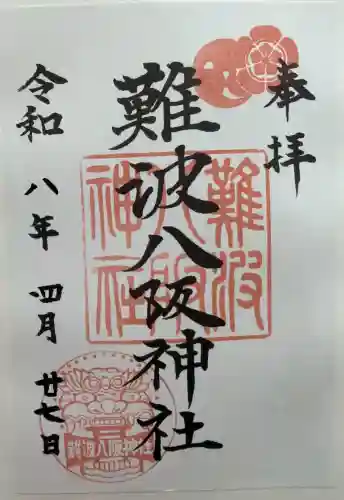 奉拝
難波八阪神社
令和八年四月廿七日
難波八阪神社
難波八阪神社